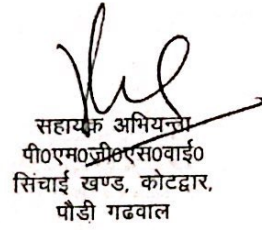 सहायक अभियन्ता
पी०एम०जी०एस०वाई०
सिंचाई खण्ड, कोटद्वार,
पौडी गढवाल